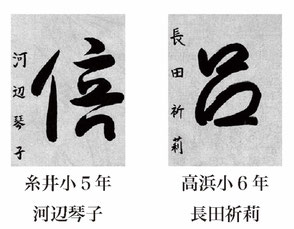 倍
河辺琴子
糸井小5年
河辺琴子
呂
長田祈莉
高浜小6年
長田祈莉